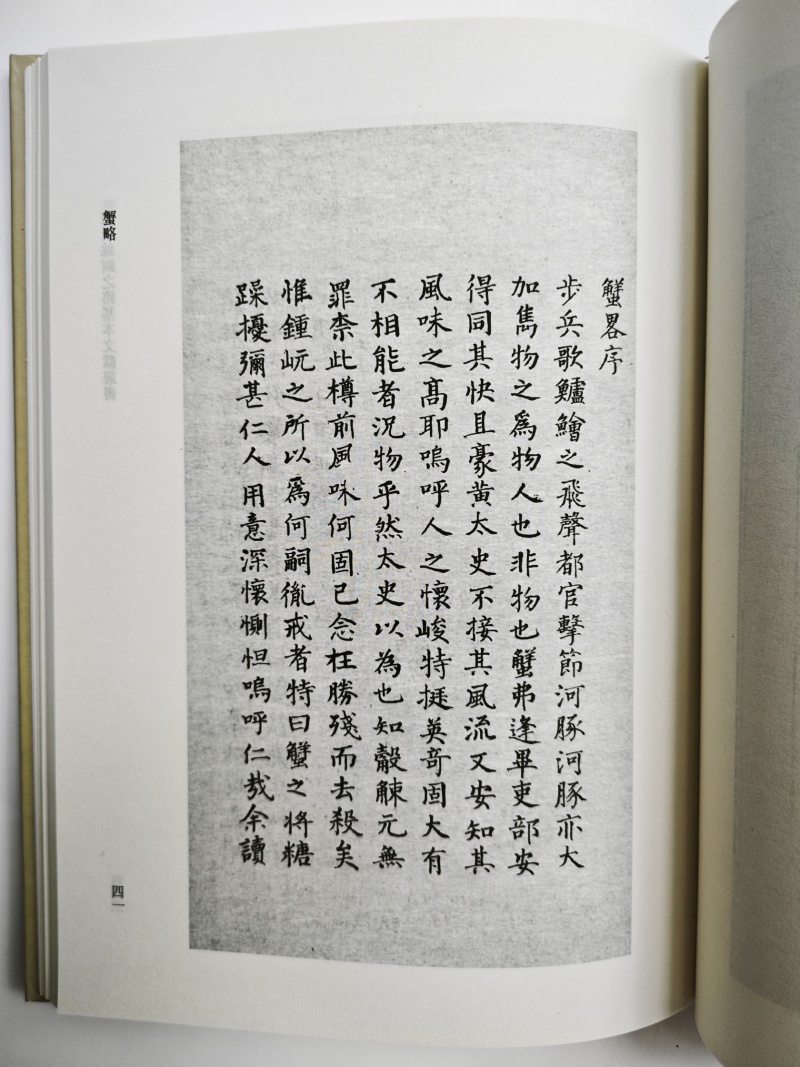 蟹畧序
步兵歌鱸鱠之飛聲都官擊節河豚河豚亦大
加雋物之爲物人也非物也蟹弗逢畢吏部安
得同其快且豪黃太史不接其風流又安知其
風味之髙耶嗚呼人之懷峻特挺英竒固大有
不相能者況物乎然太史以為也知觳觫元無
罪柰此樽前風味何固已念枉勝殘而去殺矣
惟鍾岏之所以爲何嗣㣧戒者特曰蟹之將糖
躁擾彌甚仁人用意深懷惻怛嗚呼仁㦲余讀
蟹略
四一